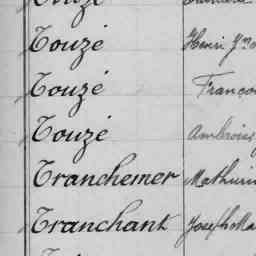 Touzé
Touzé Henri
Touzé Franço
Touzé Ambroise
Tranchemer Mathuri
Tranchant Joseph Ma